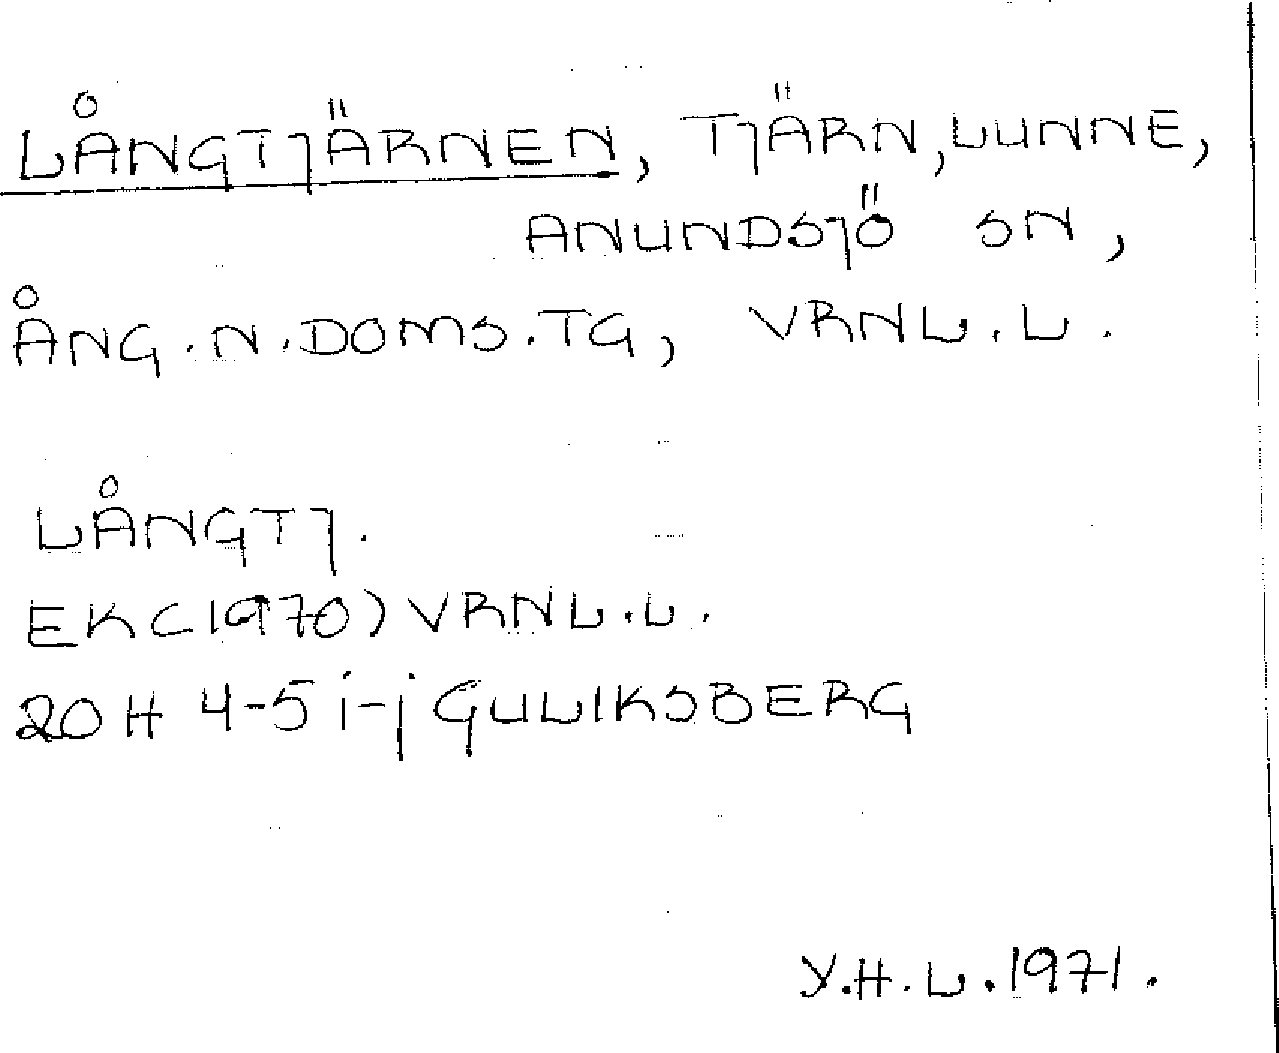 LÅNGTJÄRNEN, TJÄRN, LUNNE,
ANUNDSJÖ SN,
ÅNG.N.DOMS.TG, VRNL.L.
LÅNGTJ.
EK(1970) VRNL.L.
20H 4-5 i-j GULIKSBERG
Y.H.L.1971.